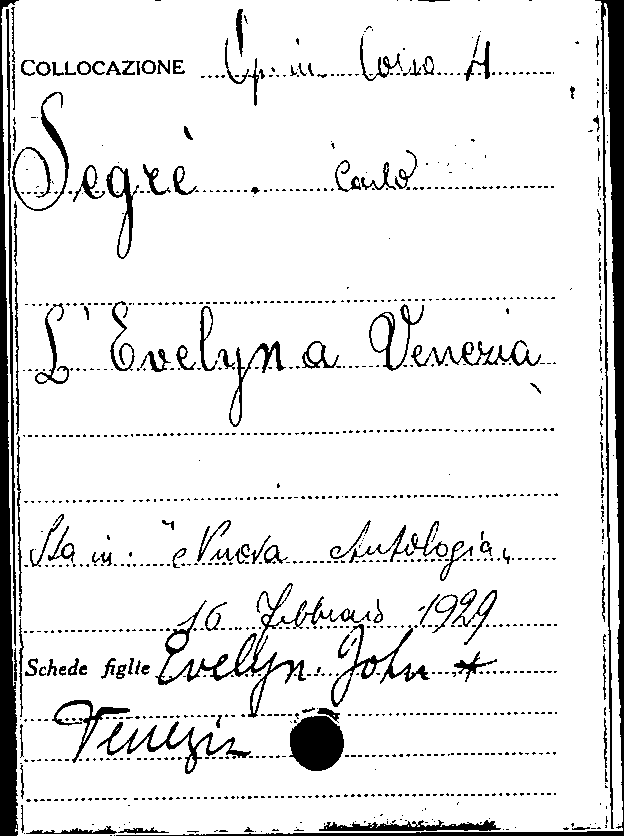 COLLOCAZIONE Op. in Corso H
Segrè . Carlo
L'Evelyn a Venezia
Sta in. "Nuova Antologia„
16 Febbraio 1929
Schede figlie Evelyn. John *
Venezia